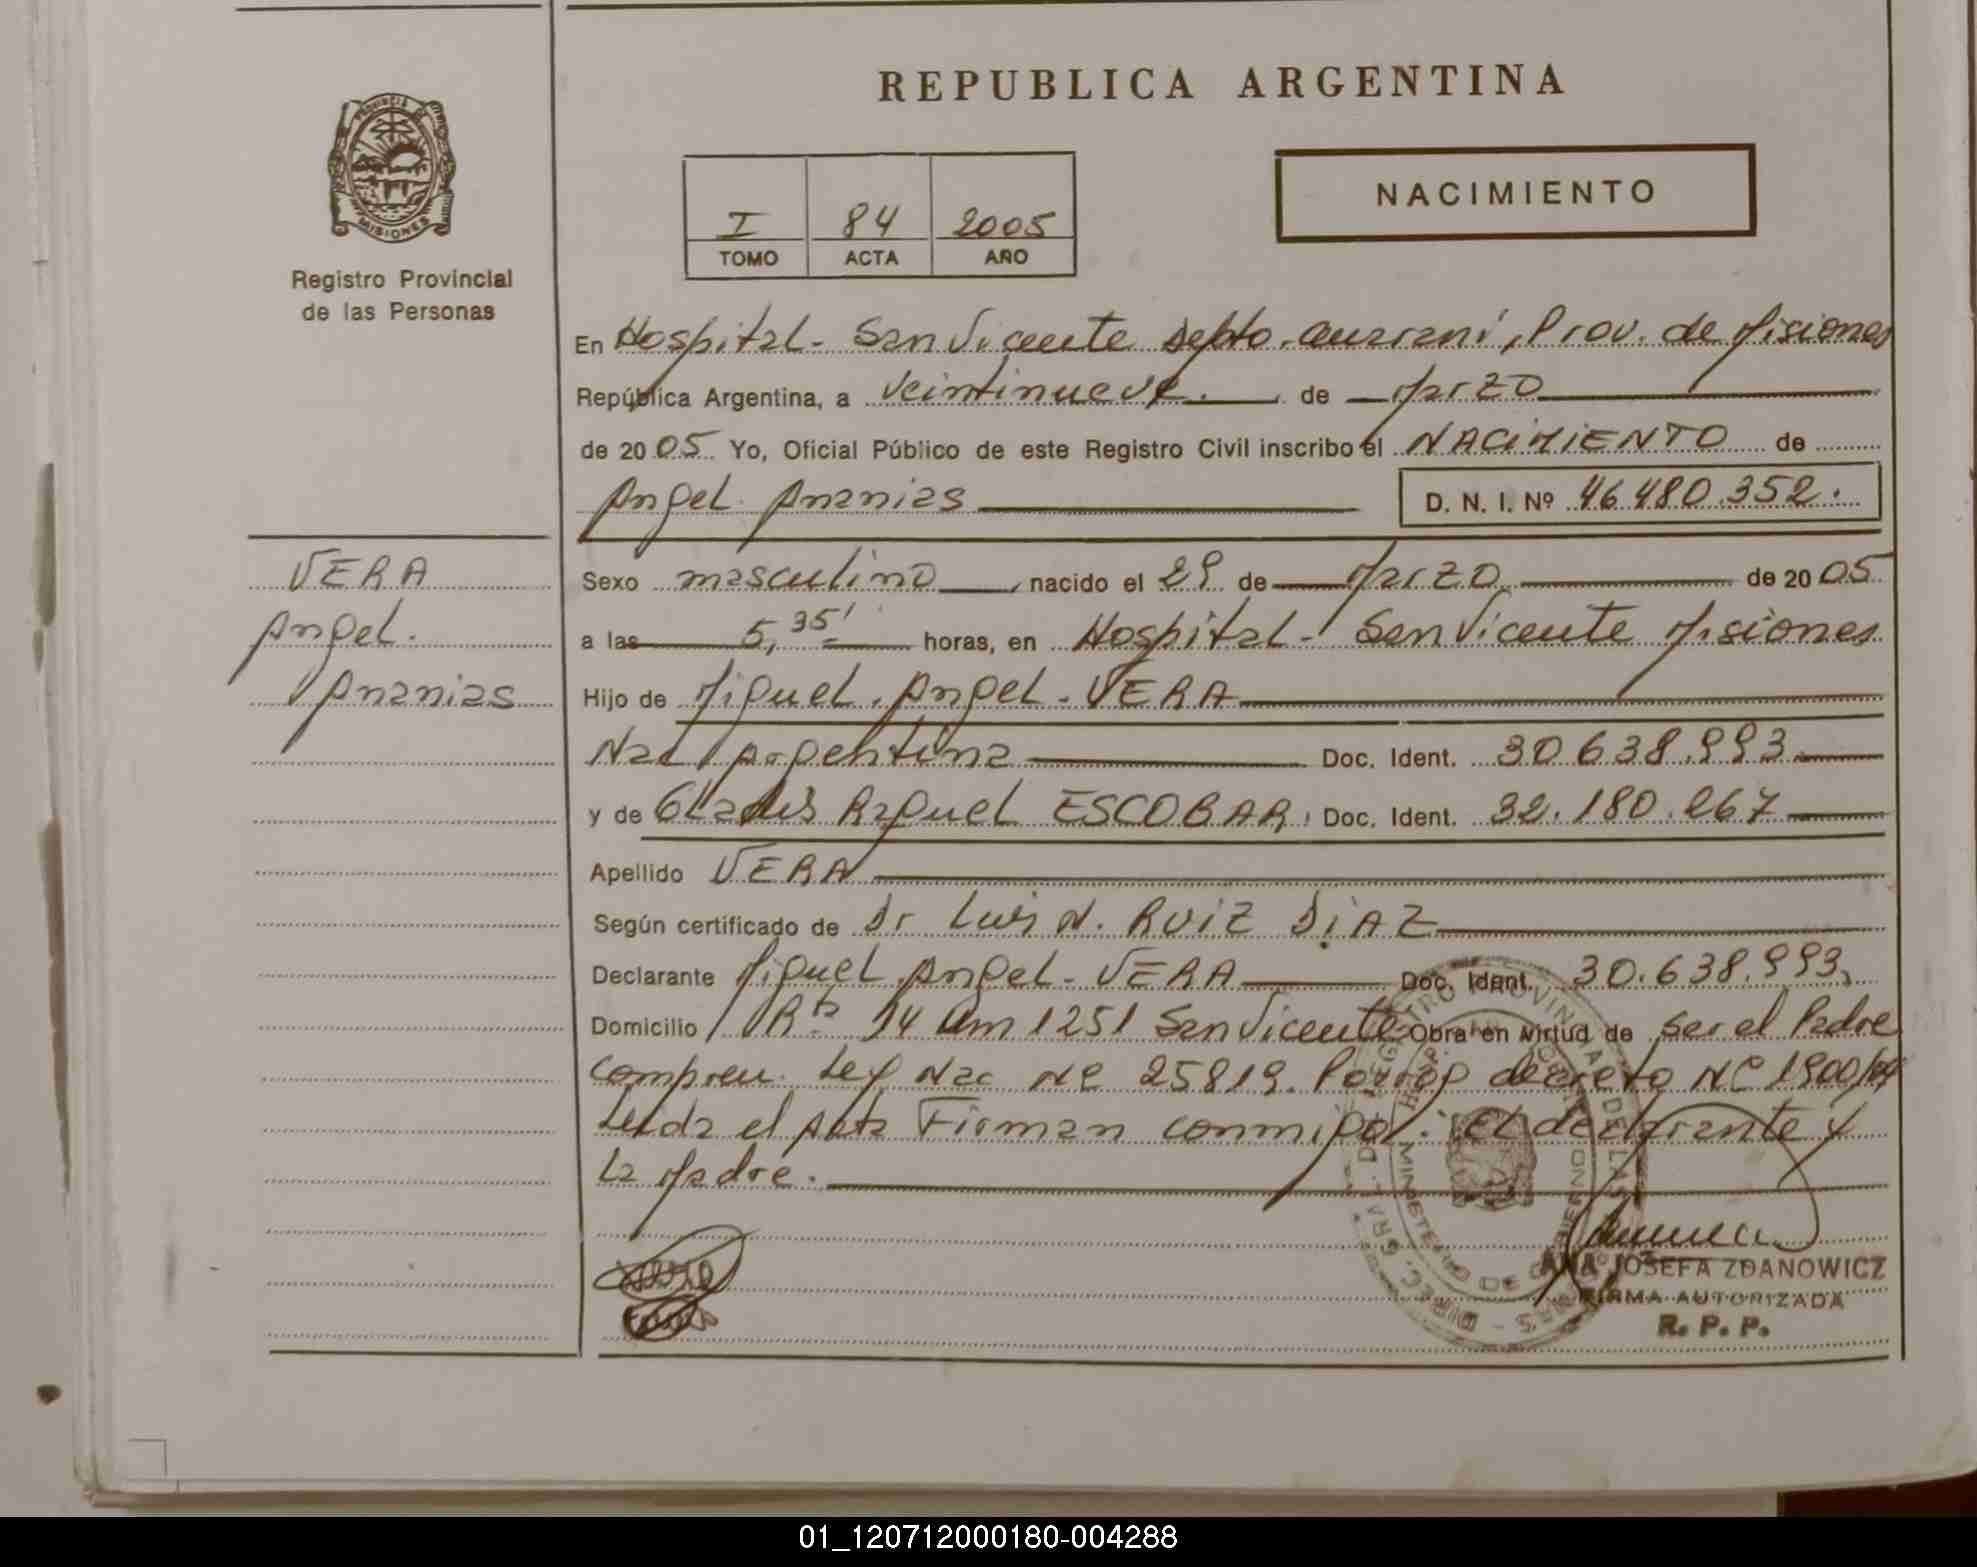 REPUBLICA ARGENTINA
PROVINCIA DE MISIONES
Registro Provincial
de las Personas
I 84 2005
TOMO ACTA AÑO
NACIMIENTO
En Hospital - San Vicente Depto. Guarani, Prov. de Misiones
República Argentina, a veintinueve. de Marzo
de 2005 Yo, Oficial Público de este Registro Civil inscribo el NACIMIENTO de
Angel Ananias D. N. I. Nº 46.480.352.
VERA
Angel.
Ananias
Sexo masculino, nacido el 29 de Marzo de 2005
a las 5,35' horas, en Hospital - San Vicente Misiones
Hijo de Miguel Angel - VERA
Nac Argentina Doc. Ident. 30.638.993
y de Gladis Raquel ESCOBAR, Doc. Ident. 32.180.267
Apellido VERA
Según certificado de Dr Luis N. RUIZ DIAZ
Declarante Miguel Angel - VERA Doc. Ident. 30.638.993,
Domicilio Rta 14 Km 1251 San Vicente Obra en virtud de ser el Padre
Compren. Ley Nac Nº 25819. Prorrog decreto Nº 1900/04
Leida el Acta Firman conmigo: El declarante y
la Madre.
ANA JOSEFA ZDANOWICZ
FIRMA AUTORIZADA
R. P. P.
01_120712000180-004288